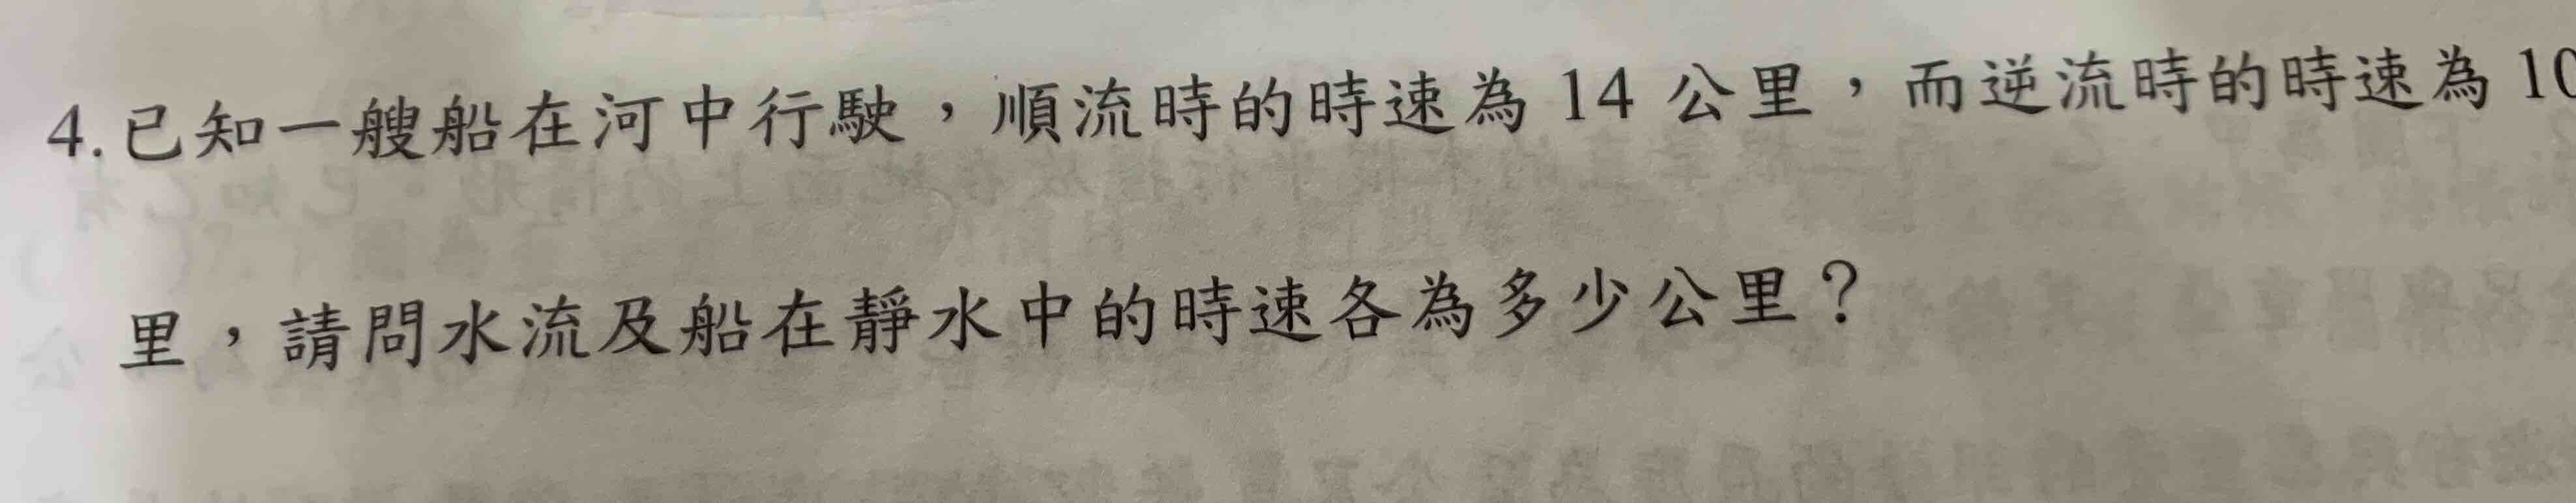 4.已知一艘船在河中行駛，順流時的時速為 14 公里，而逆流時的時速為 10
里，請問水流及船在靜水中的時速各為多少公里？